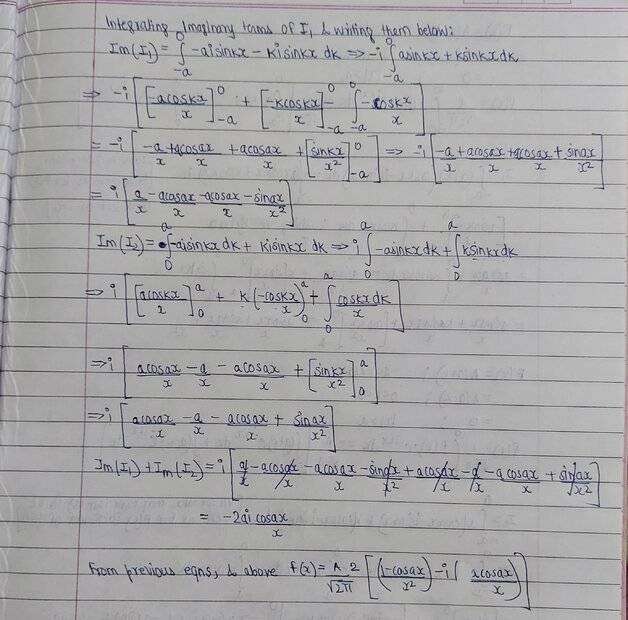 Integrating Imaginary terms of I₁ & writing them below:
Im(I₁) = ∫_{-a}^{0} -aisinkx - kisinkx dk => -i ∫_{-a}^{0} asinkx + ksinkx dk
=> -i [ [-acoskx/x]_{-a}^{0} + [-kcoskx/x]_{-a}^{0} - ∫_{-a}^{0} -coskx/x ]
= -i [ -a/x + acosax/x + acosax/x + [sinkx/x²]_{-a}^{0} ] => -i [ -a/x + acosax/x + acosax/x + sinax/x² ]
= i [ a/x - acosax/x - acosax/x - sinax/x² ]
Im(I₂) = ∫_{0}^{a} -aisinkx dk + kisinkx dk => i ∫_{0}^{a} -asinkx dk + ∫_{0}^{a} ksinkx dk
=> i [ [acoskx/2]_{0}^{a} + k(-coskx/x)_{0}^{a} + ∫_{0}^{a} coskx dk/x ]
=> i [ acosax/x - a/x - acosax/x + [sinkx/x²]_{0}^{a} ]
=> i [ acosax/x - a/x - acosax/x + sinax/x² ]
Im(I₁) + Im(I₂) = i [ a/x - acosax/x - acosax/x - sinax/x² + acosax/x - a/x - acosax/x + sinax/x² ]
= -2ai cosax/x
From previous eqns, & above f(x) = 2/√2π [ (1-cosax/x²) - i( acosax/x ) ]